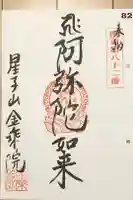 82
奉納
八十二番
阿弥陀如来
星子山 金乗院